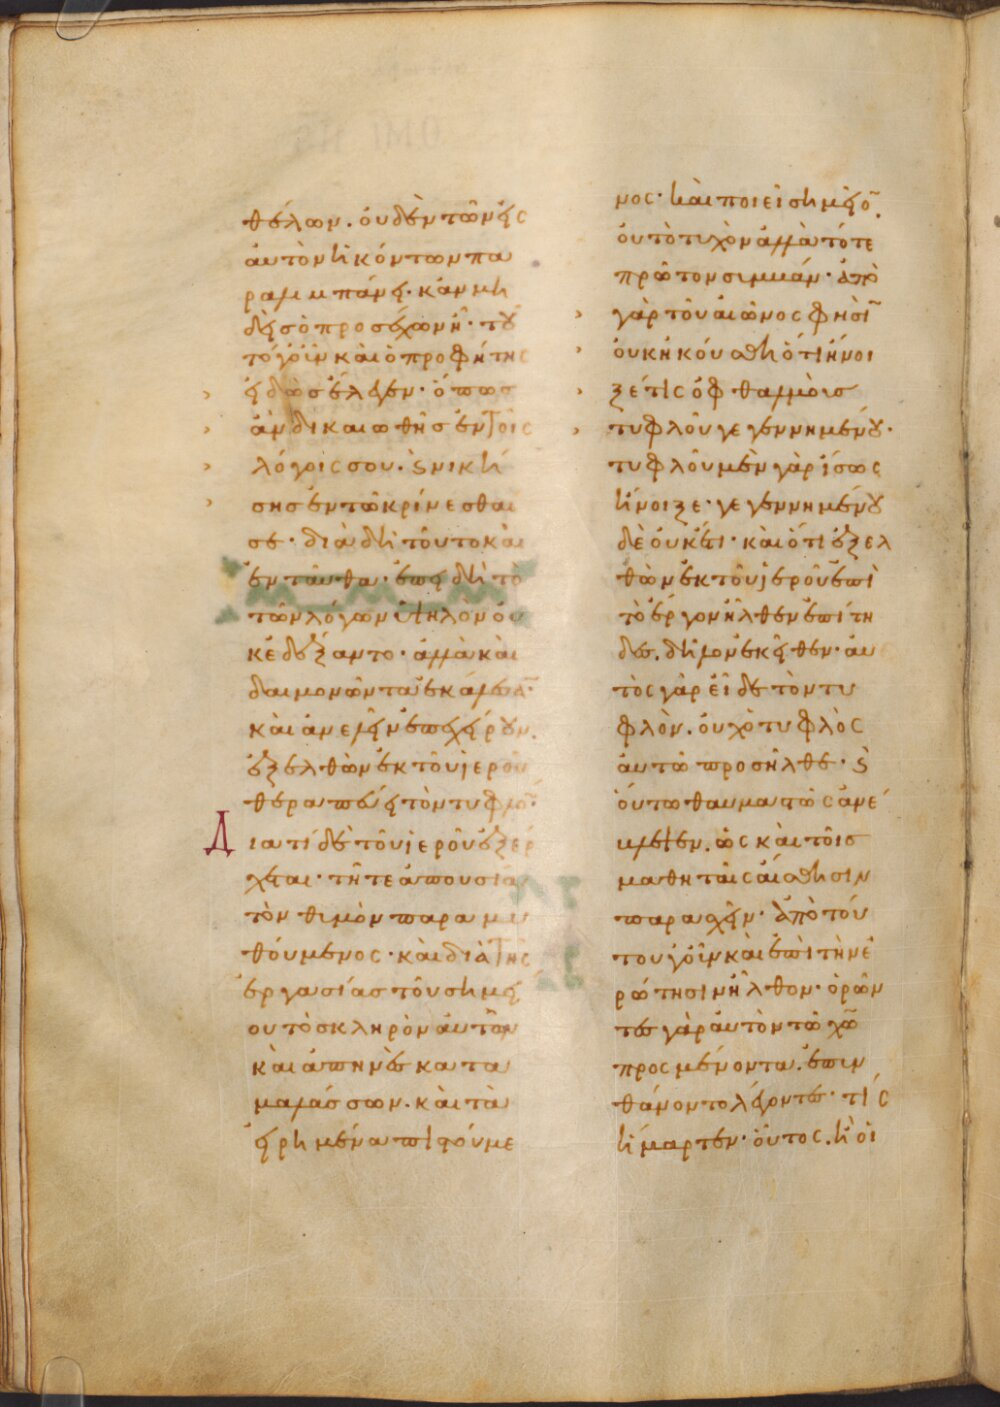 θέλων. ὀυδὲν τῶν ἐις
ἀυτὸν ἡκόντων πα
ραλιμπάνει. κἀν μὴ
δεὶς ὁ προσέχων ἦ. τοῦ
το γοῦν καὶ ὁ προφήτης
ἐιδὼς ἔλεγεν. ὅπως
ἀν δικαιωθῆς ἐν τοῖς
λόγοις σου. καὶ νική
σης ἐν τῶ κρίνεσθαί
σε. διὰ δὴ τοῦτο καὶ
ἐνταῦθα. ἐπειδὴ τὸ
τῶν λόγων ὑψηλὸν ὀυ
κ ἐδέξαντο. ἀλλὰ καὶ
δαιμονῶντα ἐκάλεσαν
καὶ ἀνελεῖν ἐπεχείρουν.
ἐξελθὼν ἐκ τοῦ ἱεροῦ
θεραπεύει τὸν τυφλὸν.
Διατί δὲ τοῦ ἱεροῦ ἐξέρ
χεται. τῆ τε ἀπουσία
τὸν θυμὸν παραμυ
θούμενος. καὶ διὰ τῆς
ἐργασίας τοῦ σημεί
ου τὸ σκληρὸν ἀυτῶν
καὶ ἀπηνὲς κατα
μαλάσσων. καὶ τὰ
ἐιρημένα πιστούμε
νος. καὶ ποιεῖ σημεῖον.
ὀυ τὸ τυχὸν ἀλλὰ τότε
πρῶτον συμβάν. ἀπὸ
γὰρ τοῦ αἰῶνος φησὶν
ὀυκ ἠκούσθη ὅτι ἤνοι
ξέ τις ὀφθαλμοὺς
τυφλοῦ γεγεννημένου.
τυφλοῦ μὲν γὰρ ἴσως
ἤνοιξε. γεγεννημένου
δὲ ὀυκέτι. καὶ ὅτι ἐξελ
θὼν ἐκ τοῦ ἱεροῦ ἐπὶ
τὸ ἔργον ἦλθεν ἐπίτη
δες. δῆλον ἐκεῖθεν. ἀυ
τὸς γὰρ εἶδε τὸν τυ
φλὸν. ὀυχ ὁ τυφλὸς
ἀυτῶ προσῆλθε. καὶ
ὅυτω θαυμαστῶς ἀνέ
βλεψεν. ὡς καὶ τοῖς
μαθηταῖς ἄισθησιν
παρασχεῖν. ἀπὸ τού
του γοῦν καὶ ἐπὶ τὴν ἐ
ρώτησιν ἦλθον. ὁρῶν
τες γὰρ ἀυτὸν τῶ χῶ
προσμένοντα. ἐπυν
θάνοντο λέγοντες. τίς
ἥμαρτεν. ὅυτος. ἢ ὁι